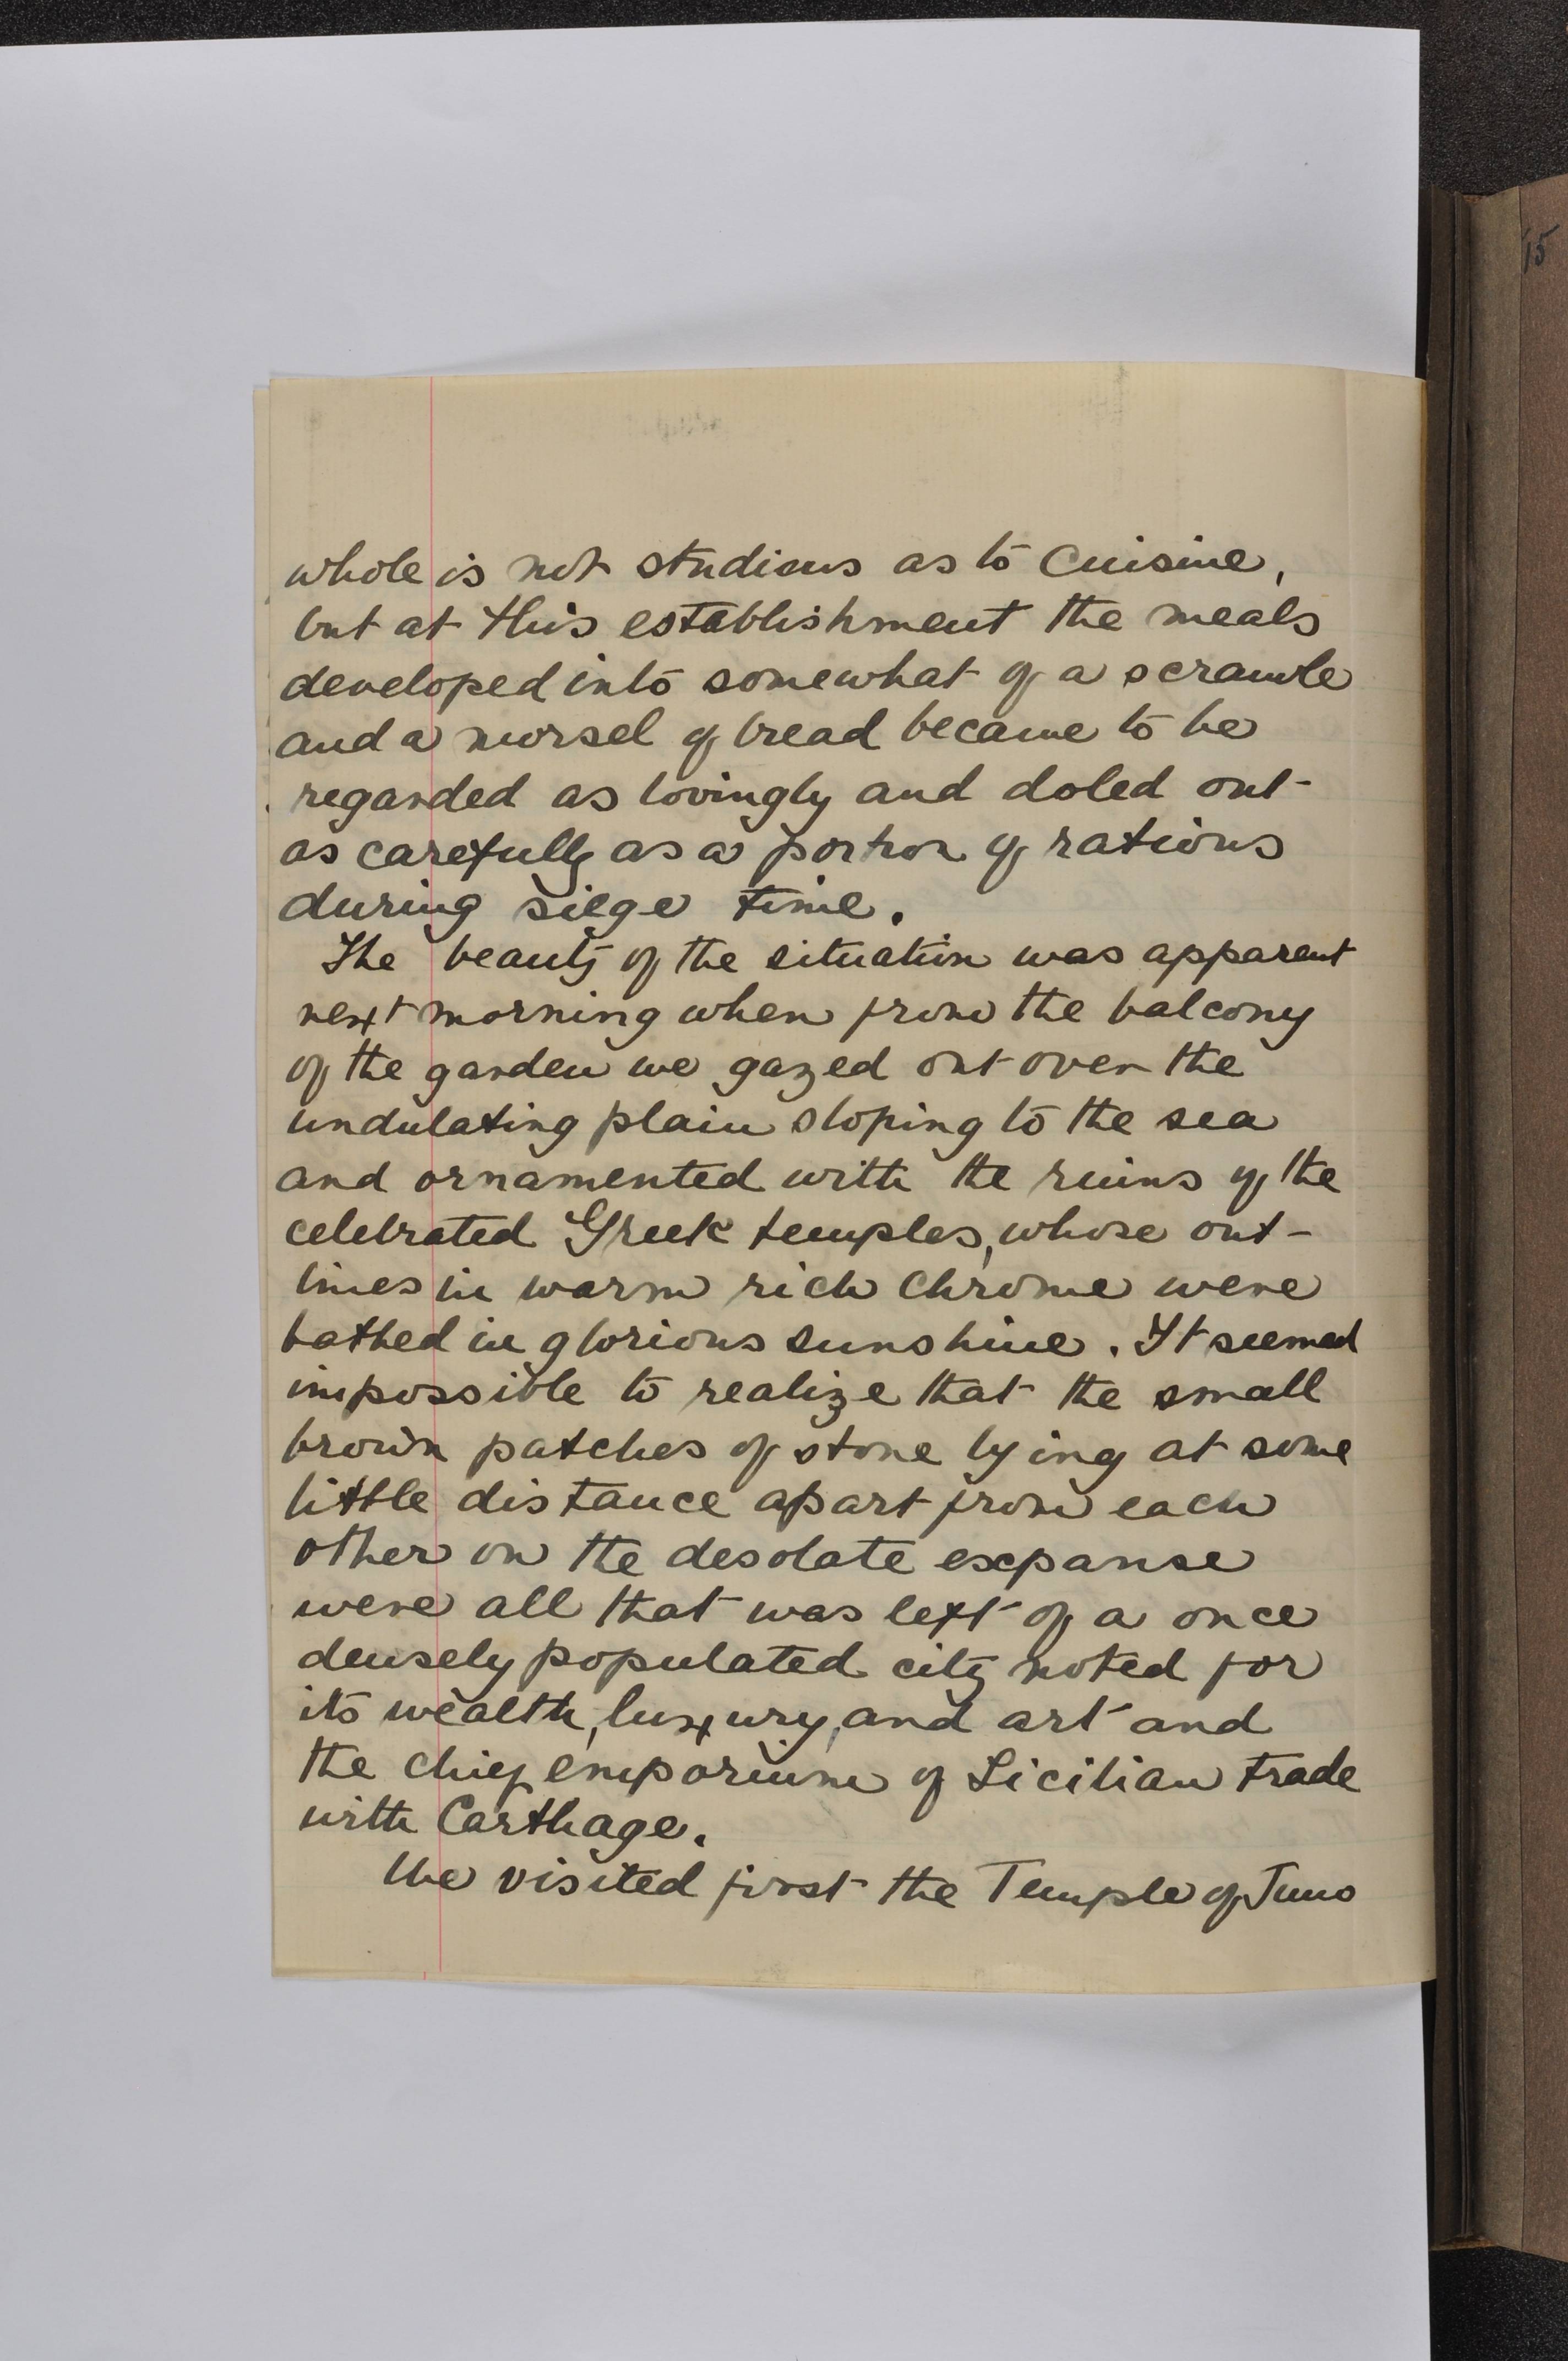 whole is not studious as to cuisine,
but at this establishment the meals
developed into somewhat of a scramble
and a morsel of bread became to be
regarded as lovingly and doled out
as carefully as a portion of rations
during siege time.
The beauty of the situation was apparent
next morning when from the balcony
of the garden we gazed out over the
undulating plain sloping to the sea
and ornamented with the ruins of the
celebrated Greek temples, whose out-
lines in warm rich chrome were
bathed in glorious sunshine. It seemed
impossible to realize that the small
brown patches of stone lying at some
little distance apart from each
other on the desolate expanse
were all that was left of a once
densely populated city noted for
its wealth, luxury, and art and
the chief emporium of Sicilian trade
with Carthage.
We visited first the Temple of Juno
15